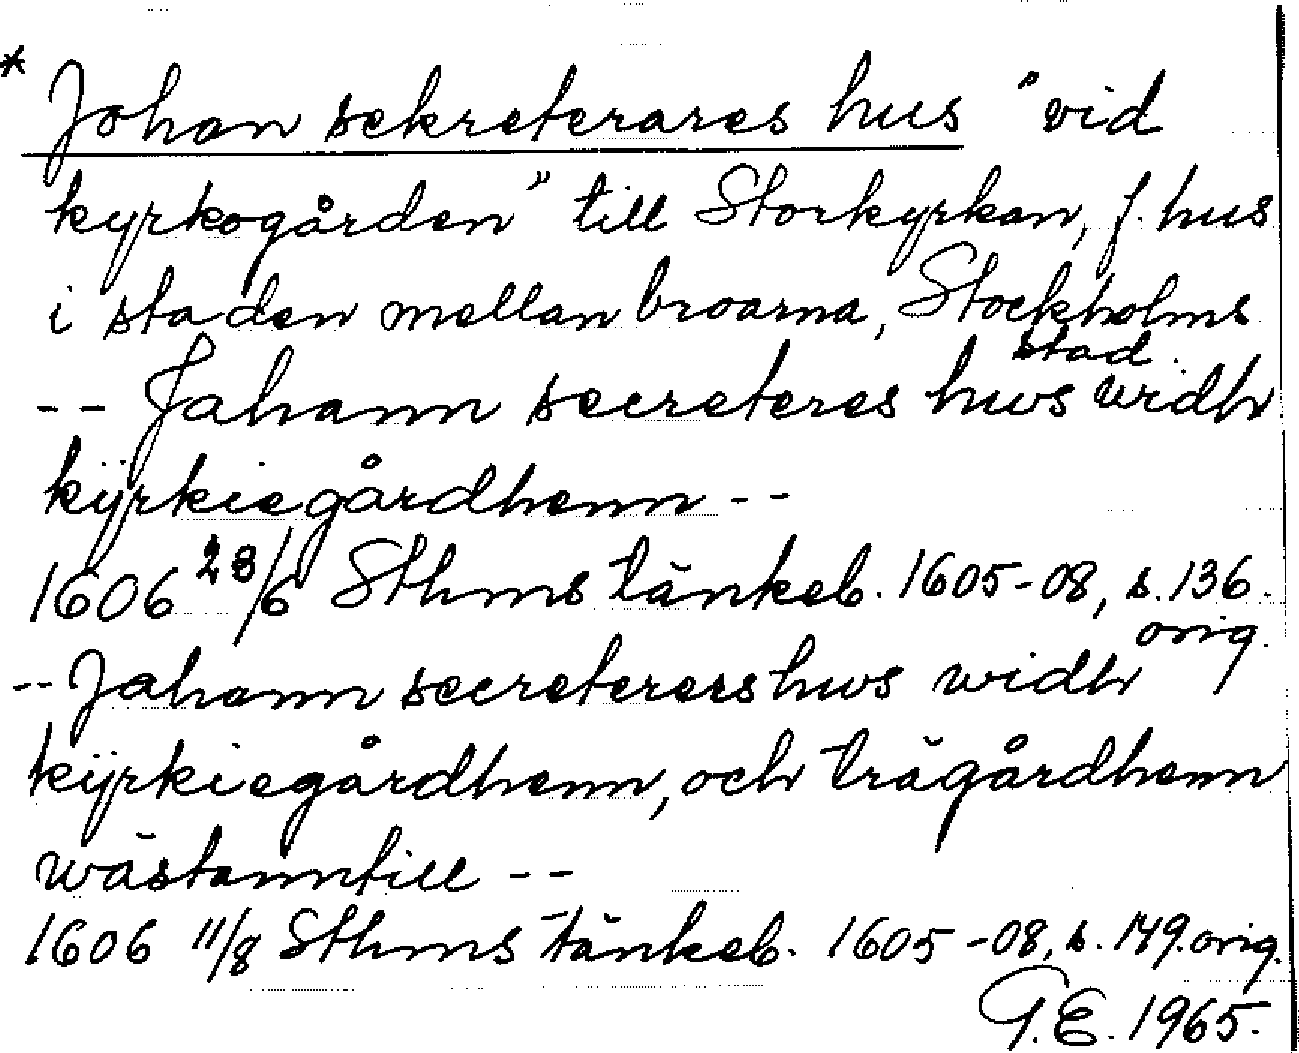 * Johan sekreterares hus "vid
kyrkogården" till Storkyrkan, f. hus
i staden mellan broarna, Stockholms
stad.
-- Jahann secreteres hws widh
kÿrkiegårdhenn --
1606 28/6 Sthms tänkeb. 1605-08, s. 136.
orig.
-- Jahann secreterers hws widh
kÿrkiegårdhenn, och trägårdhenn
wästanntill --
1606 11/8 Sthms tänkeb. 1605-08, s. 149. orig.
G.E. 1965.